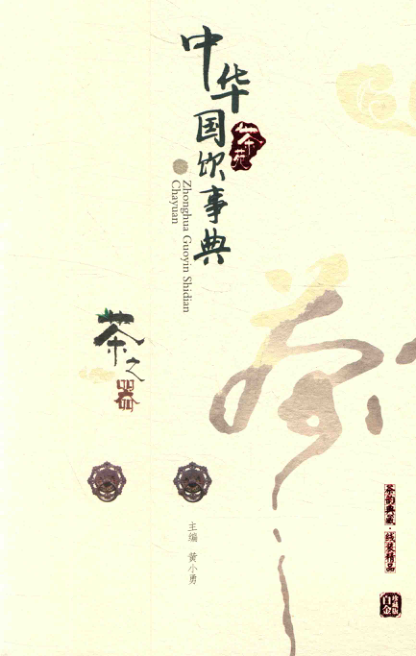 中华国饮事典
茶苑
Zhonghua Guoyin Shidian
Chayuan
茶之器
茶
主编 黄小勇
茶韵典藏·线装精品
白金
珍藏版